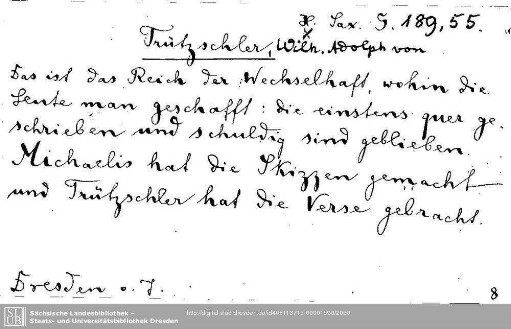 H. Sax. G. 189,55.
Trützschler, Wilh. Adolph von
Das ist das Reich der Wechselhaft, wohin die
Leute man geschafft: die einstens quer ge-
schrieben und schuldig sind geblieben.
Michaelis hat die Skizzen gemacht
und Trützschler hat die Verse gebracht.
Dresden o. J.
8
SLUB
Sächsische Landesbibliothek –
Staats- und Universitätsbibliothek Dresden